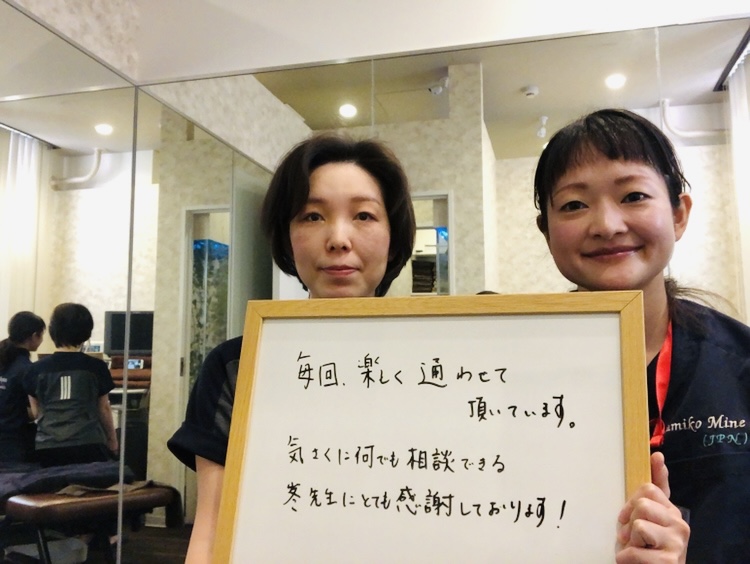 毎回、楽しく通わせて
頂いています。
気さくに何でも相談できる
峯先生にとても感謝しております!
umiko Mine
(JPN)